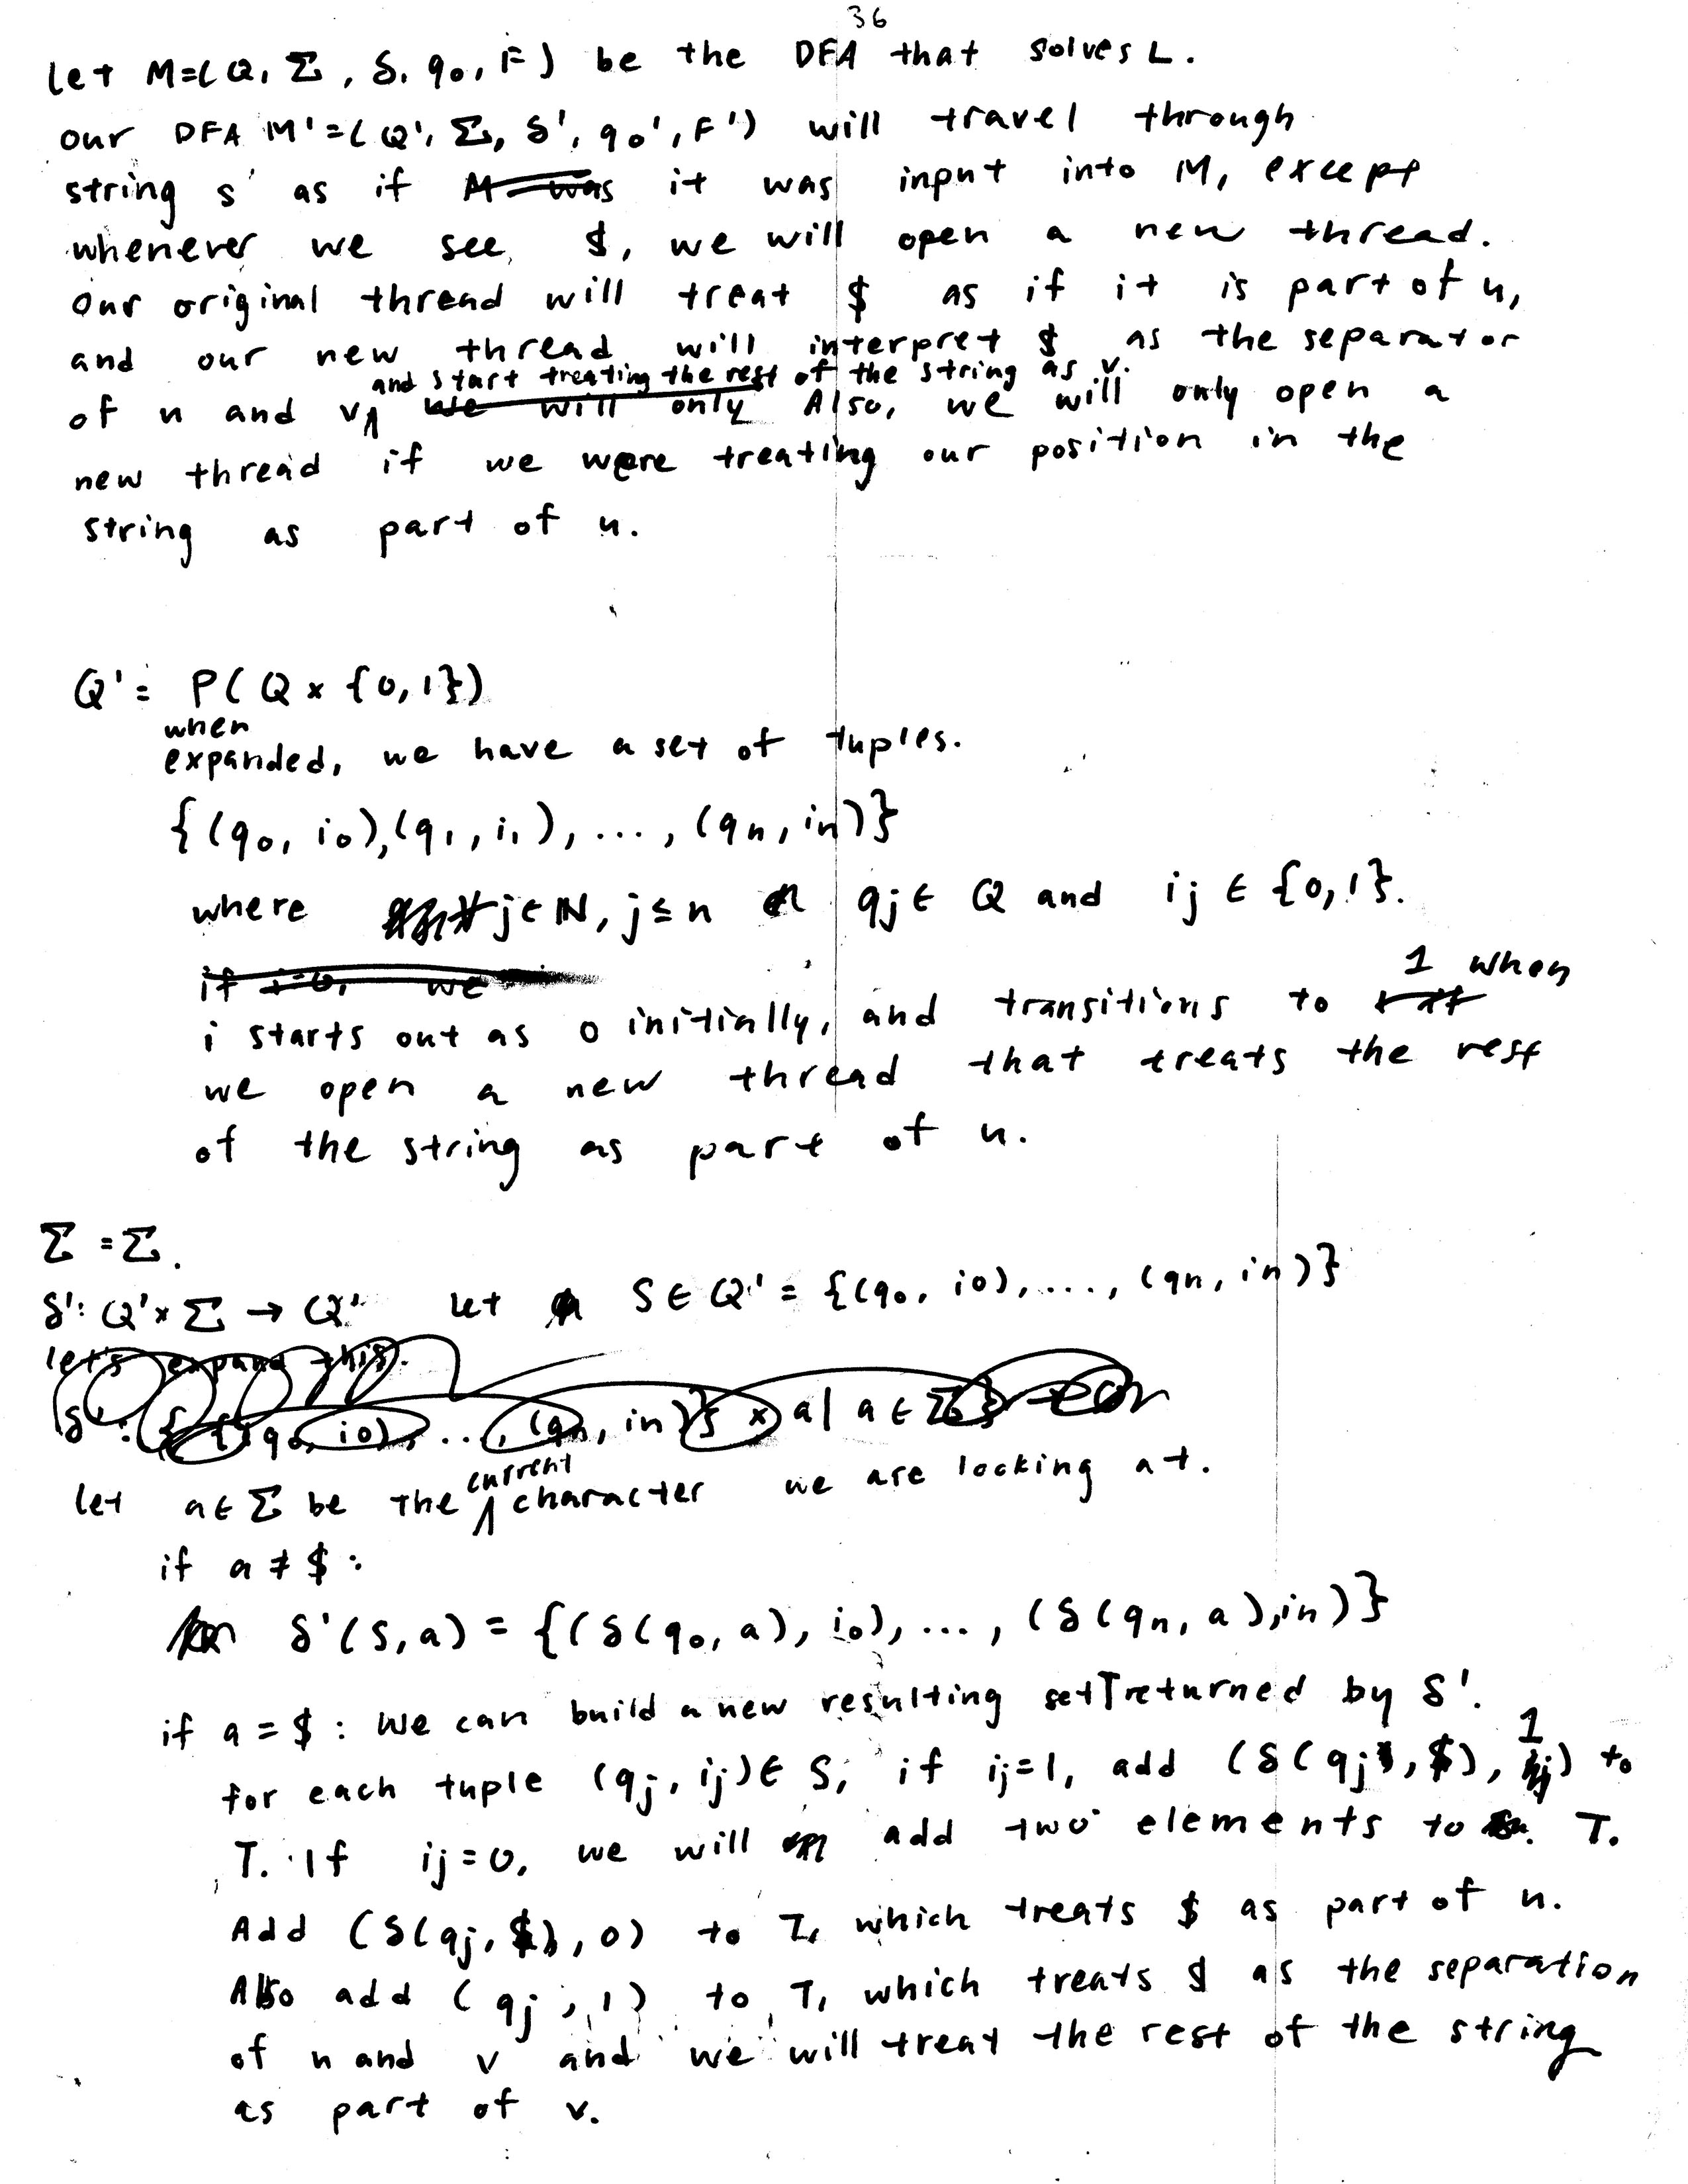 36
let M=(Q, Σ, δ, q0, F) be the DFA that solves L.
our DFA M'=(Q', Σ, δ', q0', F') will travel through
string s as if M was it was input into M, except
whenever we see $, we will open a new thread.
our original thread will treat $ as if it is part of u,
and our new thread will interpret $ as the separator
and start treating the rest of the string as v.
of u and v we will only Also, we will only open a
new thread if we were treating our position in the
string as part of u.
Q' = P(Q × {0,1})
when
expanded, we have a set of tuples.
{(q0, i0),(q1, i1), ..., (qn, in)}
where j∈ℕ, j≤n qj∈ Q and ij ∈ {0,1}.
if i=0, we
1 when
i starts out as 0 initially, and transitions to
we open a new thread that treats the rest
of the string as part of u.
Σ = Σ.
δ': Q'×Σ → Q' let S∈Q' = {(q0, i0), ...., (qn, in)}
let's expand this.
δ': {{(q0, i0), ..., (qn, in)} × a | a∈Σ}
current
let a∈Σ be the character we are looking at.
if a ≠ $:
δ'(S, a) = {(δ(q0, a), i0), ..., (δ(qn, a), in)}
if a = $: We can build a new resulting set T returned by δ'.
1
for each tuple (qj, ij)∈ S, if ij=1, add (δ(qj, $), ij) to
T. If ij=0, we will add two elements to T.
Add (δ(qj, $), 0) to T, which treats $ as part of u.
Also add (qj, 1) to T, which treats $ as the separation
of u and v and we will treat the rest of the string
as part of v.